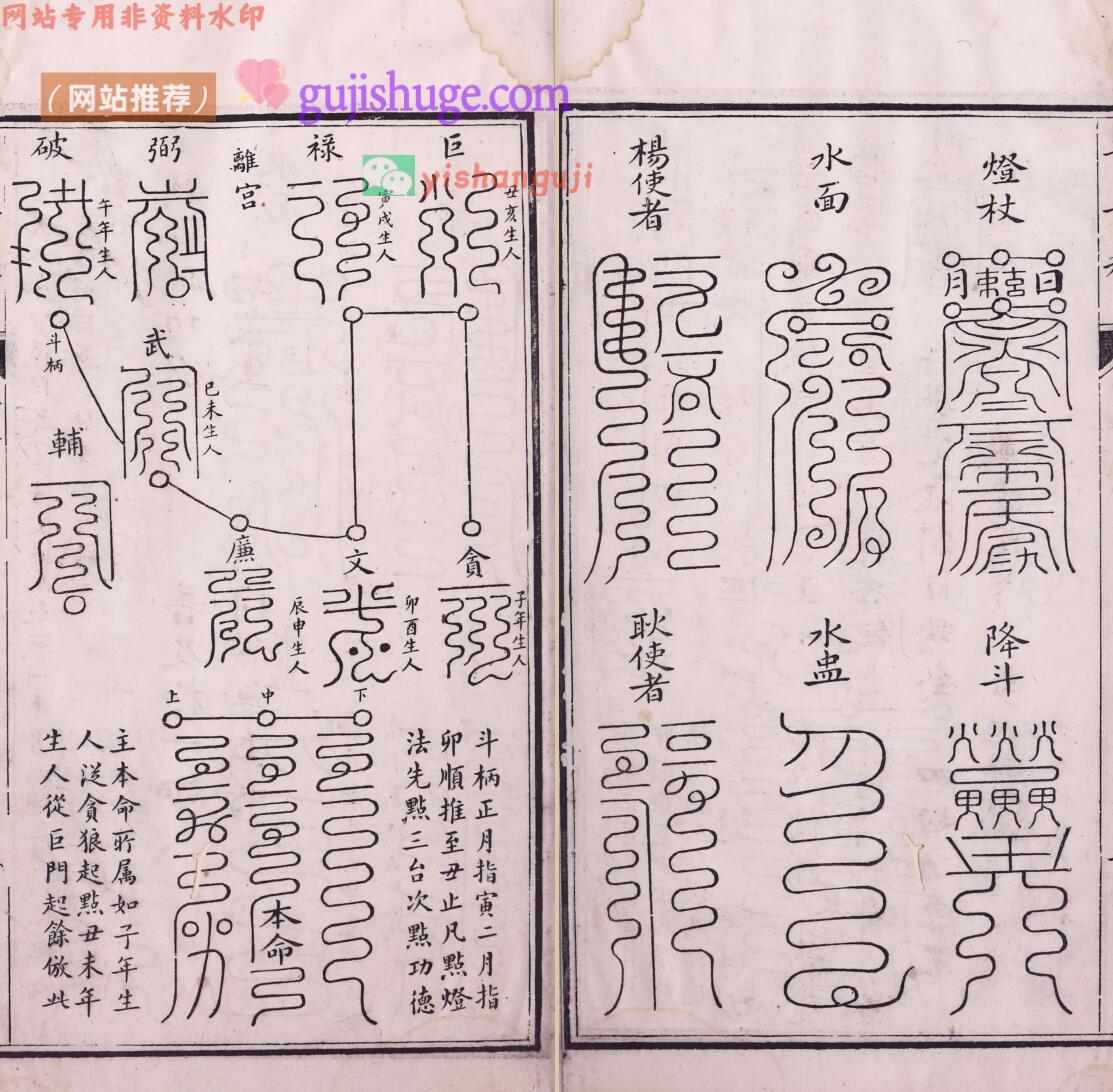 网站专用非资料水印
（网站推荐）
gujishuge.com
yishanguji
燈杖
日
月
降斗
水面
水蛊
楊使者
耿使者
巨
丑亥生人
禄
寅戌生人
離宮
弼
破
午年生人
斗柄
武
巳未生人
輔
廉
辰申生人
文
卯酉生人
貪
子年生人
下
中
上
本命
斗柄正月指寅二月指
卯順推至丑止凡點燈
法先點三台次點功德
主本命所属如子年生
人從貪狼起點丑未年
生人從巨門起餘倣此